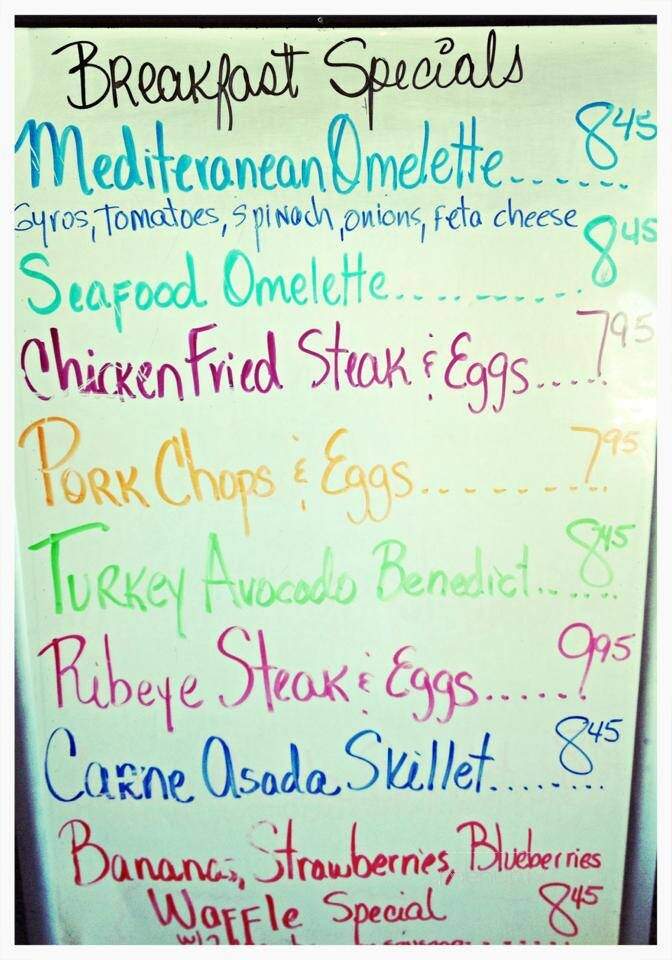 Breakfast Specials
Mediteranean Omelette...... 8 45
Gyros, Tomatoes, Spinach, onions, feta cheese
Seafood Omelette........... 8 45
Chicken Fried Steak & Eggs..... 7 95
Pork Chops & Eggs.......... 7 95
Turkey Avocado Benedict...... 8 45
Ribeye Steak & Eggs...... 9 95
Carne Asada Skillet........ 8 45
Bananas, Strawberries, Blueberries
Waffle Special 8 45